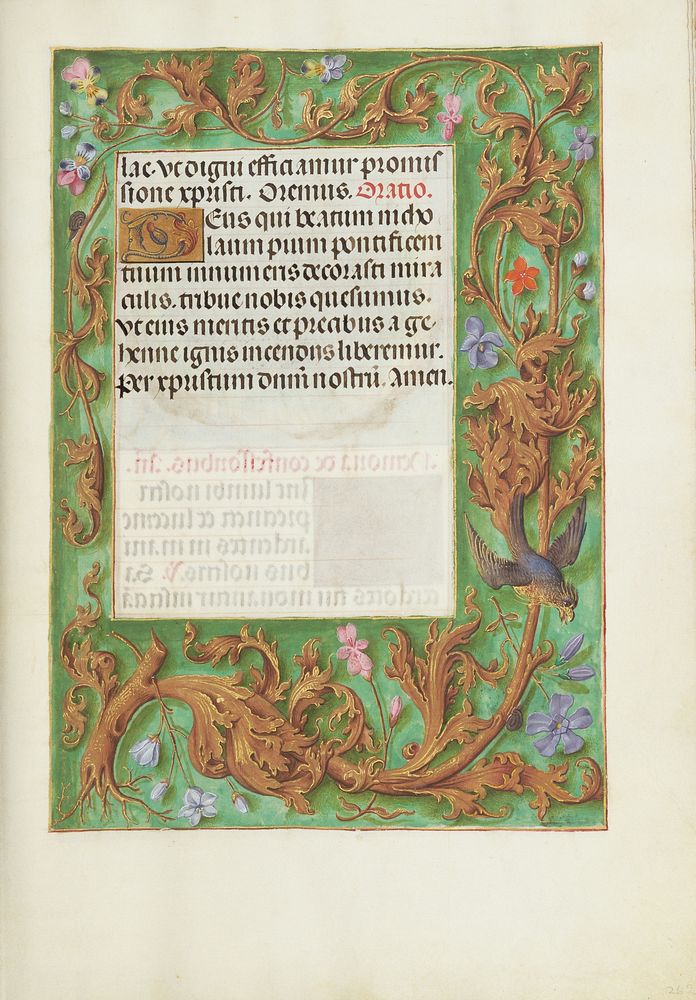 lae. Vt digni efficiamur promis
sione xpristi. Oremus. Oratio.
Deus qui beatum nicho
laum pium pontificem
tuum innumeris decorasti mira
culis. tribue nobis quesumus.
Vt eius meritis et precibus a ge
henne ignis incendiis liberemur.
Per xpristum dnm̄ nostrū. Amen.